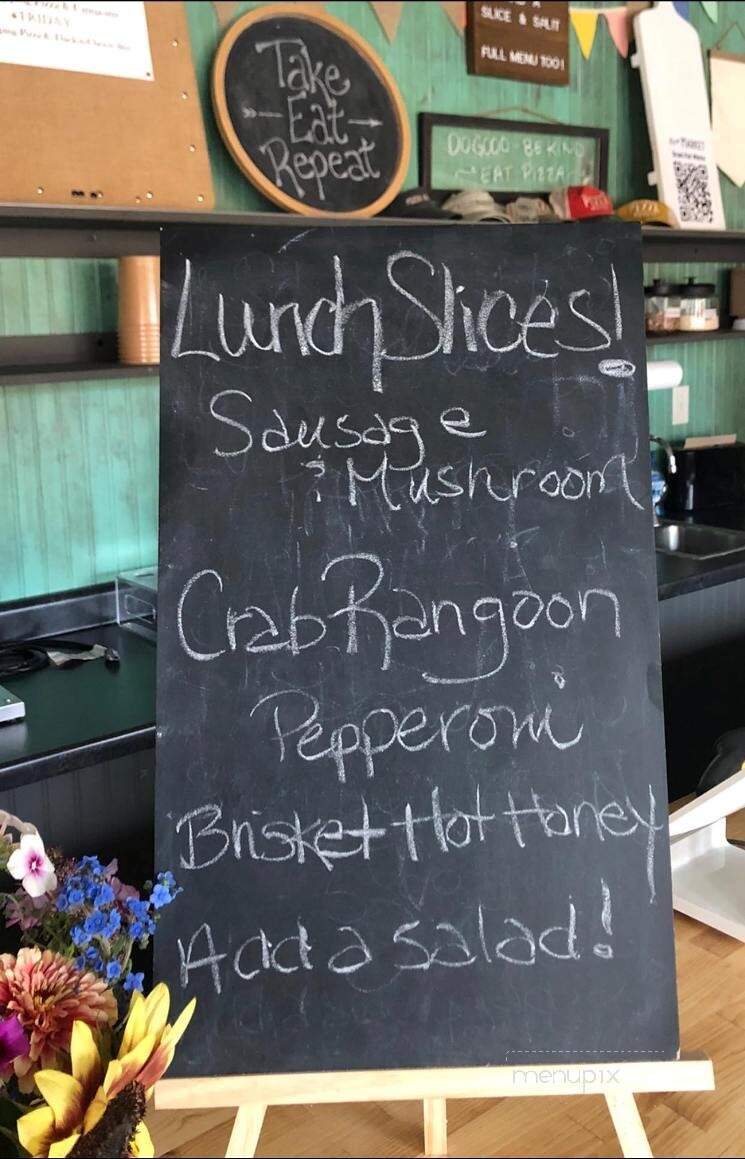 FRIDAY
SLICE & SALIT
FULL MENU TOO!
Take
Eat
Repeat
DO GOOD · BE KIND
EAT PIZZA
Lunch Slices!
Sausage
& Mushroom
Crab Rangoon
Pepperoni
Brisket Hot Honey
Add a salad!
menupix